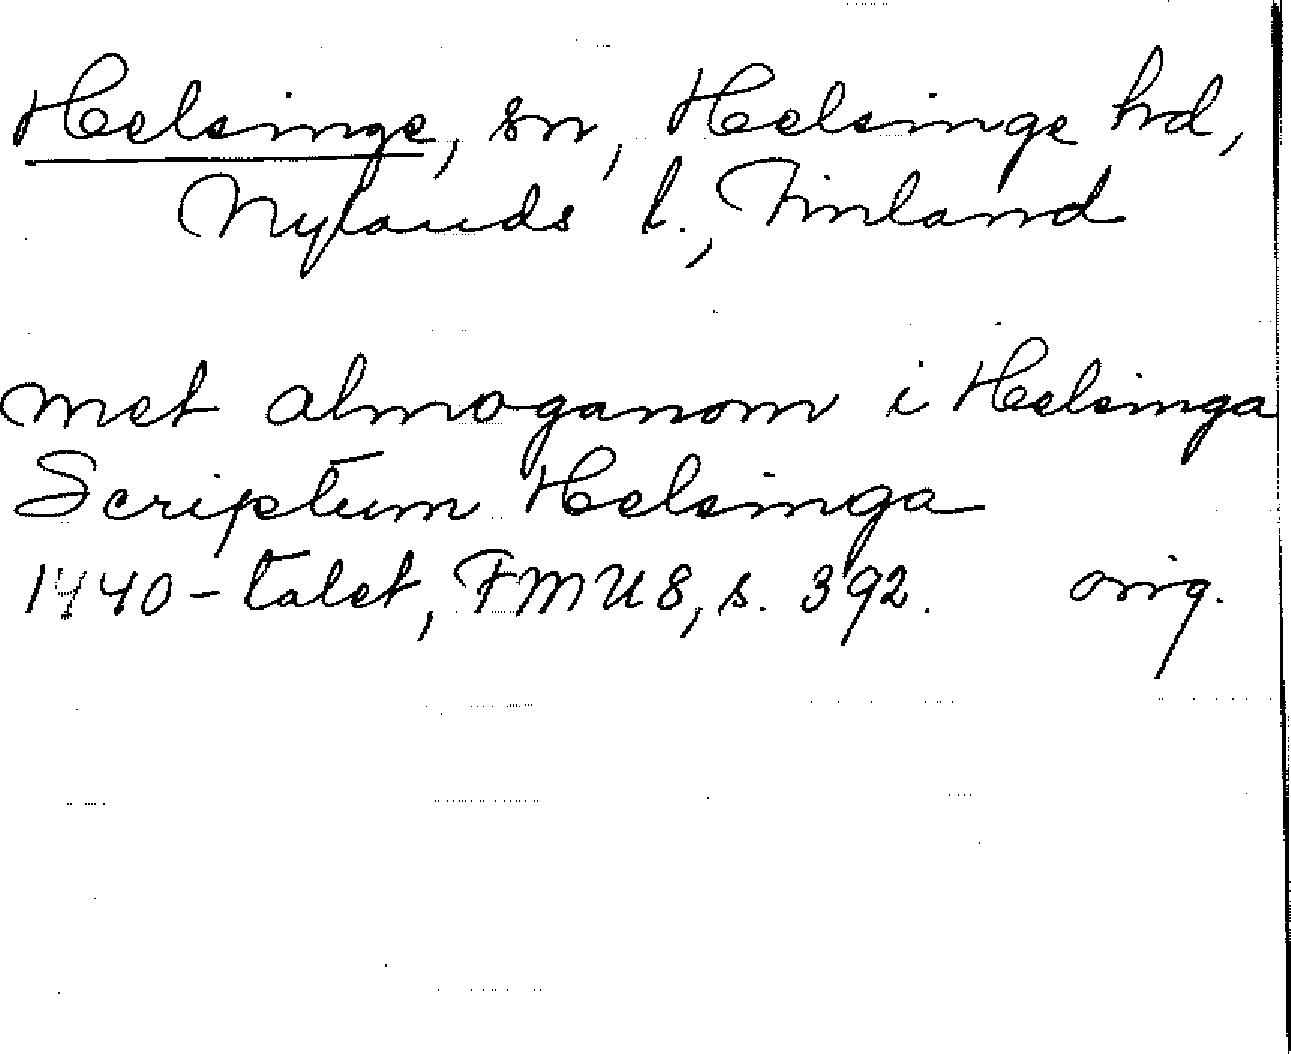 Helsinge, sn, Helsinge hd,
Nylands l., Finland
met almoganom i Helsinga
Scriptum Helsinga
1440-talet, FMU 8, s. 392. orig.